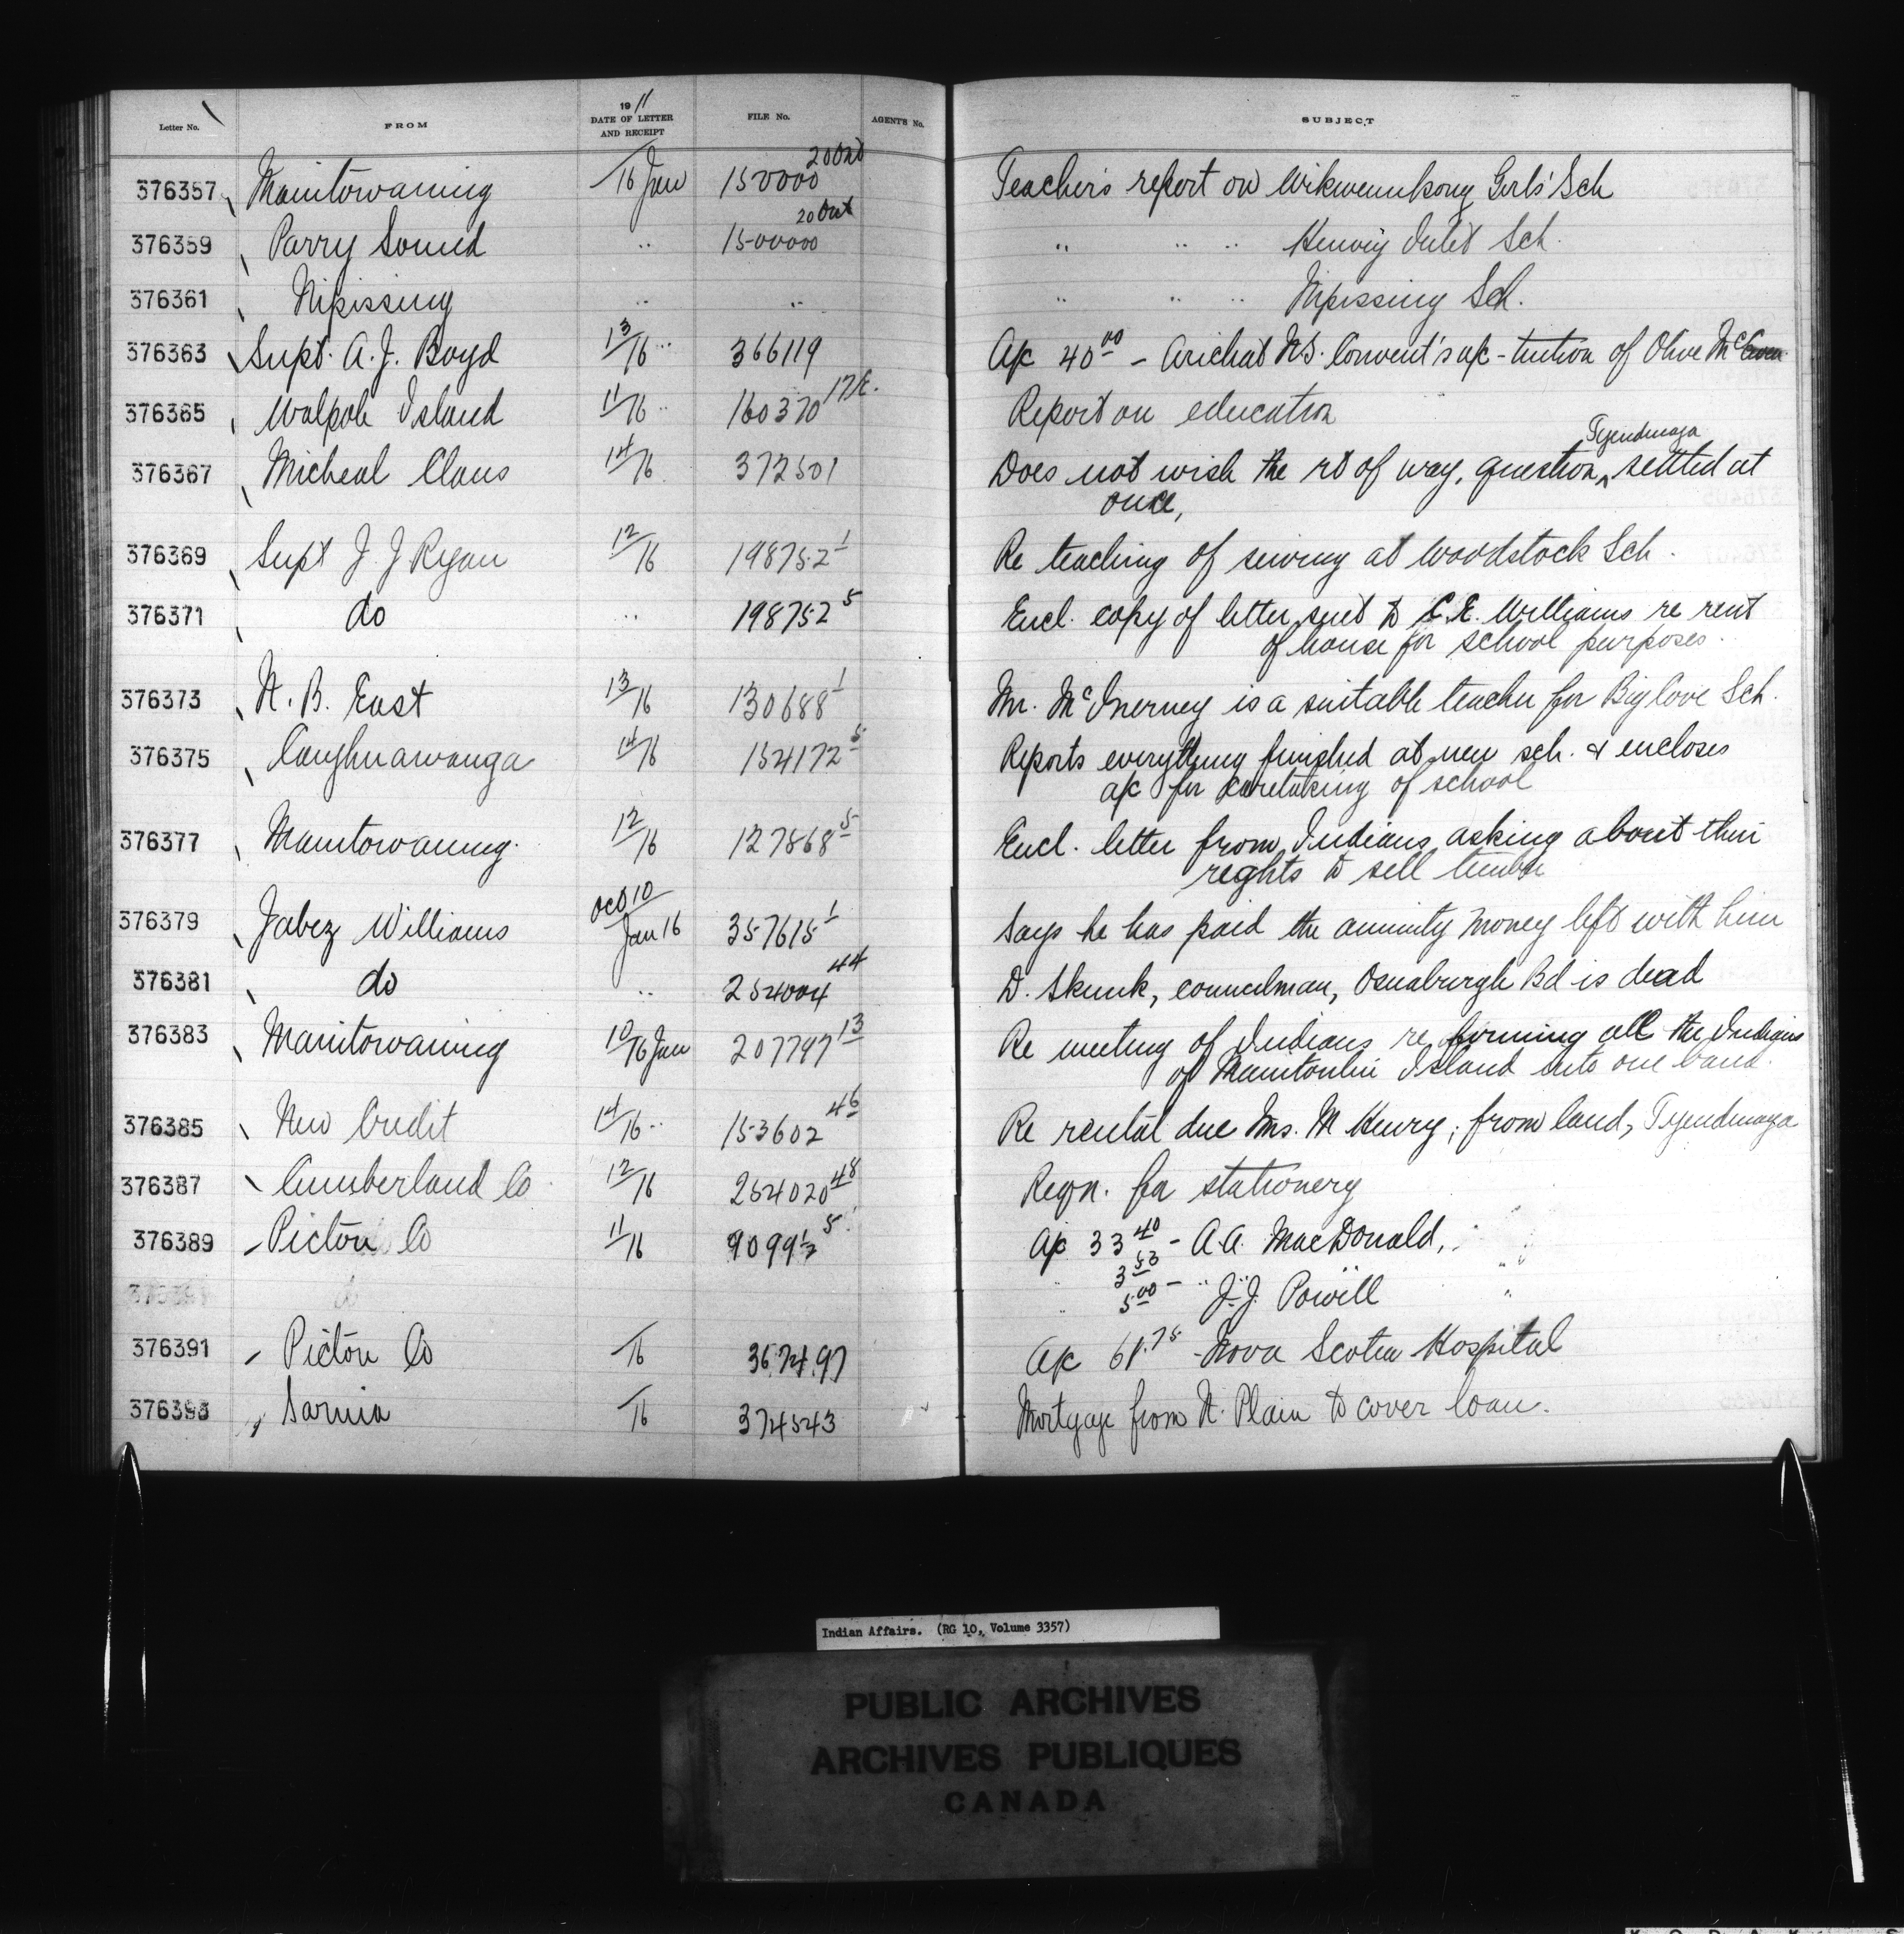 Letter No. FROM 1911 DATE OF LETTER AND RECEIPT FILE No. AGENT'S No. SUBJECT
376357 Manitowaning /16 Jan 150000 20 Ont Teacher's report on Wikwemikong Girls' Sch
376359 Parry Sound " 150000 20 Ont " " " Henvey Inlet Sch.
376361 Nipissing " " " " " Nipissing Sch.
376363 Supt. A. J. Boyd 13/16 " 366119 A/c 40 00 - Arichat N.S. Convent's a/c - tuition of Olive Mc
376365 Walpole Island 11/16 " 160370 17/E. Report on education
376367 Micheal Claus 14/16 372501 Does not wish the rt of way, question, ^ Tyendinaga settled at
once,
376369 Supt J J Ryan 12/16 198752 1 Re teaching of sewing at Woodstock Sch.
376371 do " 198752 5 Encl. copy of letter sent to C. E. Williams re rent
of house for school purposes.
376373 N. B. East 13/16 130688 1 Mr. McInerney is a suitable teacher for Big Cove Sch.
376375 Caughnawauga 14/16 154172 5 Reports everything finished at new sch. & encloses
a/c for caretaking of school
376377 Manitowaning. 12/16 127868 5 Encl. letter from Indians asking about their
reghts to sell timber
376379 Jabez Williams Oct 10/Jan 16 357615 1 Says he has paid the annuity money left with him
376381 do " 254004 44 D. Skunk, councilman, Osnaburgh Bd is dead
376383 Manitowaning 10/16 Jan 207797 13 Re meeting of Indians re forming all the Indians
of Manitoulin Island into one band.
376385 New Credit 14/16 " 153602 46 Re rental due Mrs. M Henry; from land, Tyendinaga
376387 Cumberland Co 12/16 254020 48 Reqn. for stationery
376389 Pictou Co 11/16 5 A/c 33 40 - A. A. MacDonald,
" 3 53 " "
" 5 00 - " J. J. Powell "
376391 Pictou Co /16 367497 A/c 61.75 - Nova Scotia Hospital
376393 Sarnia /16 374543 Mortgage from N. Plain to cover loan.
Indian Affairs. (RG 10, Volume 3357)
PUBLIC ARCHIVES
ARCHIVES PUBLIQUES
CANADA